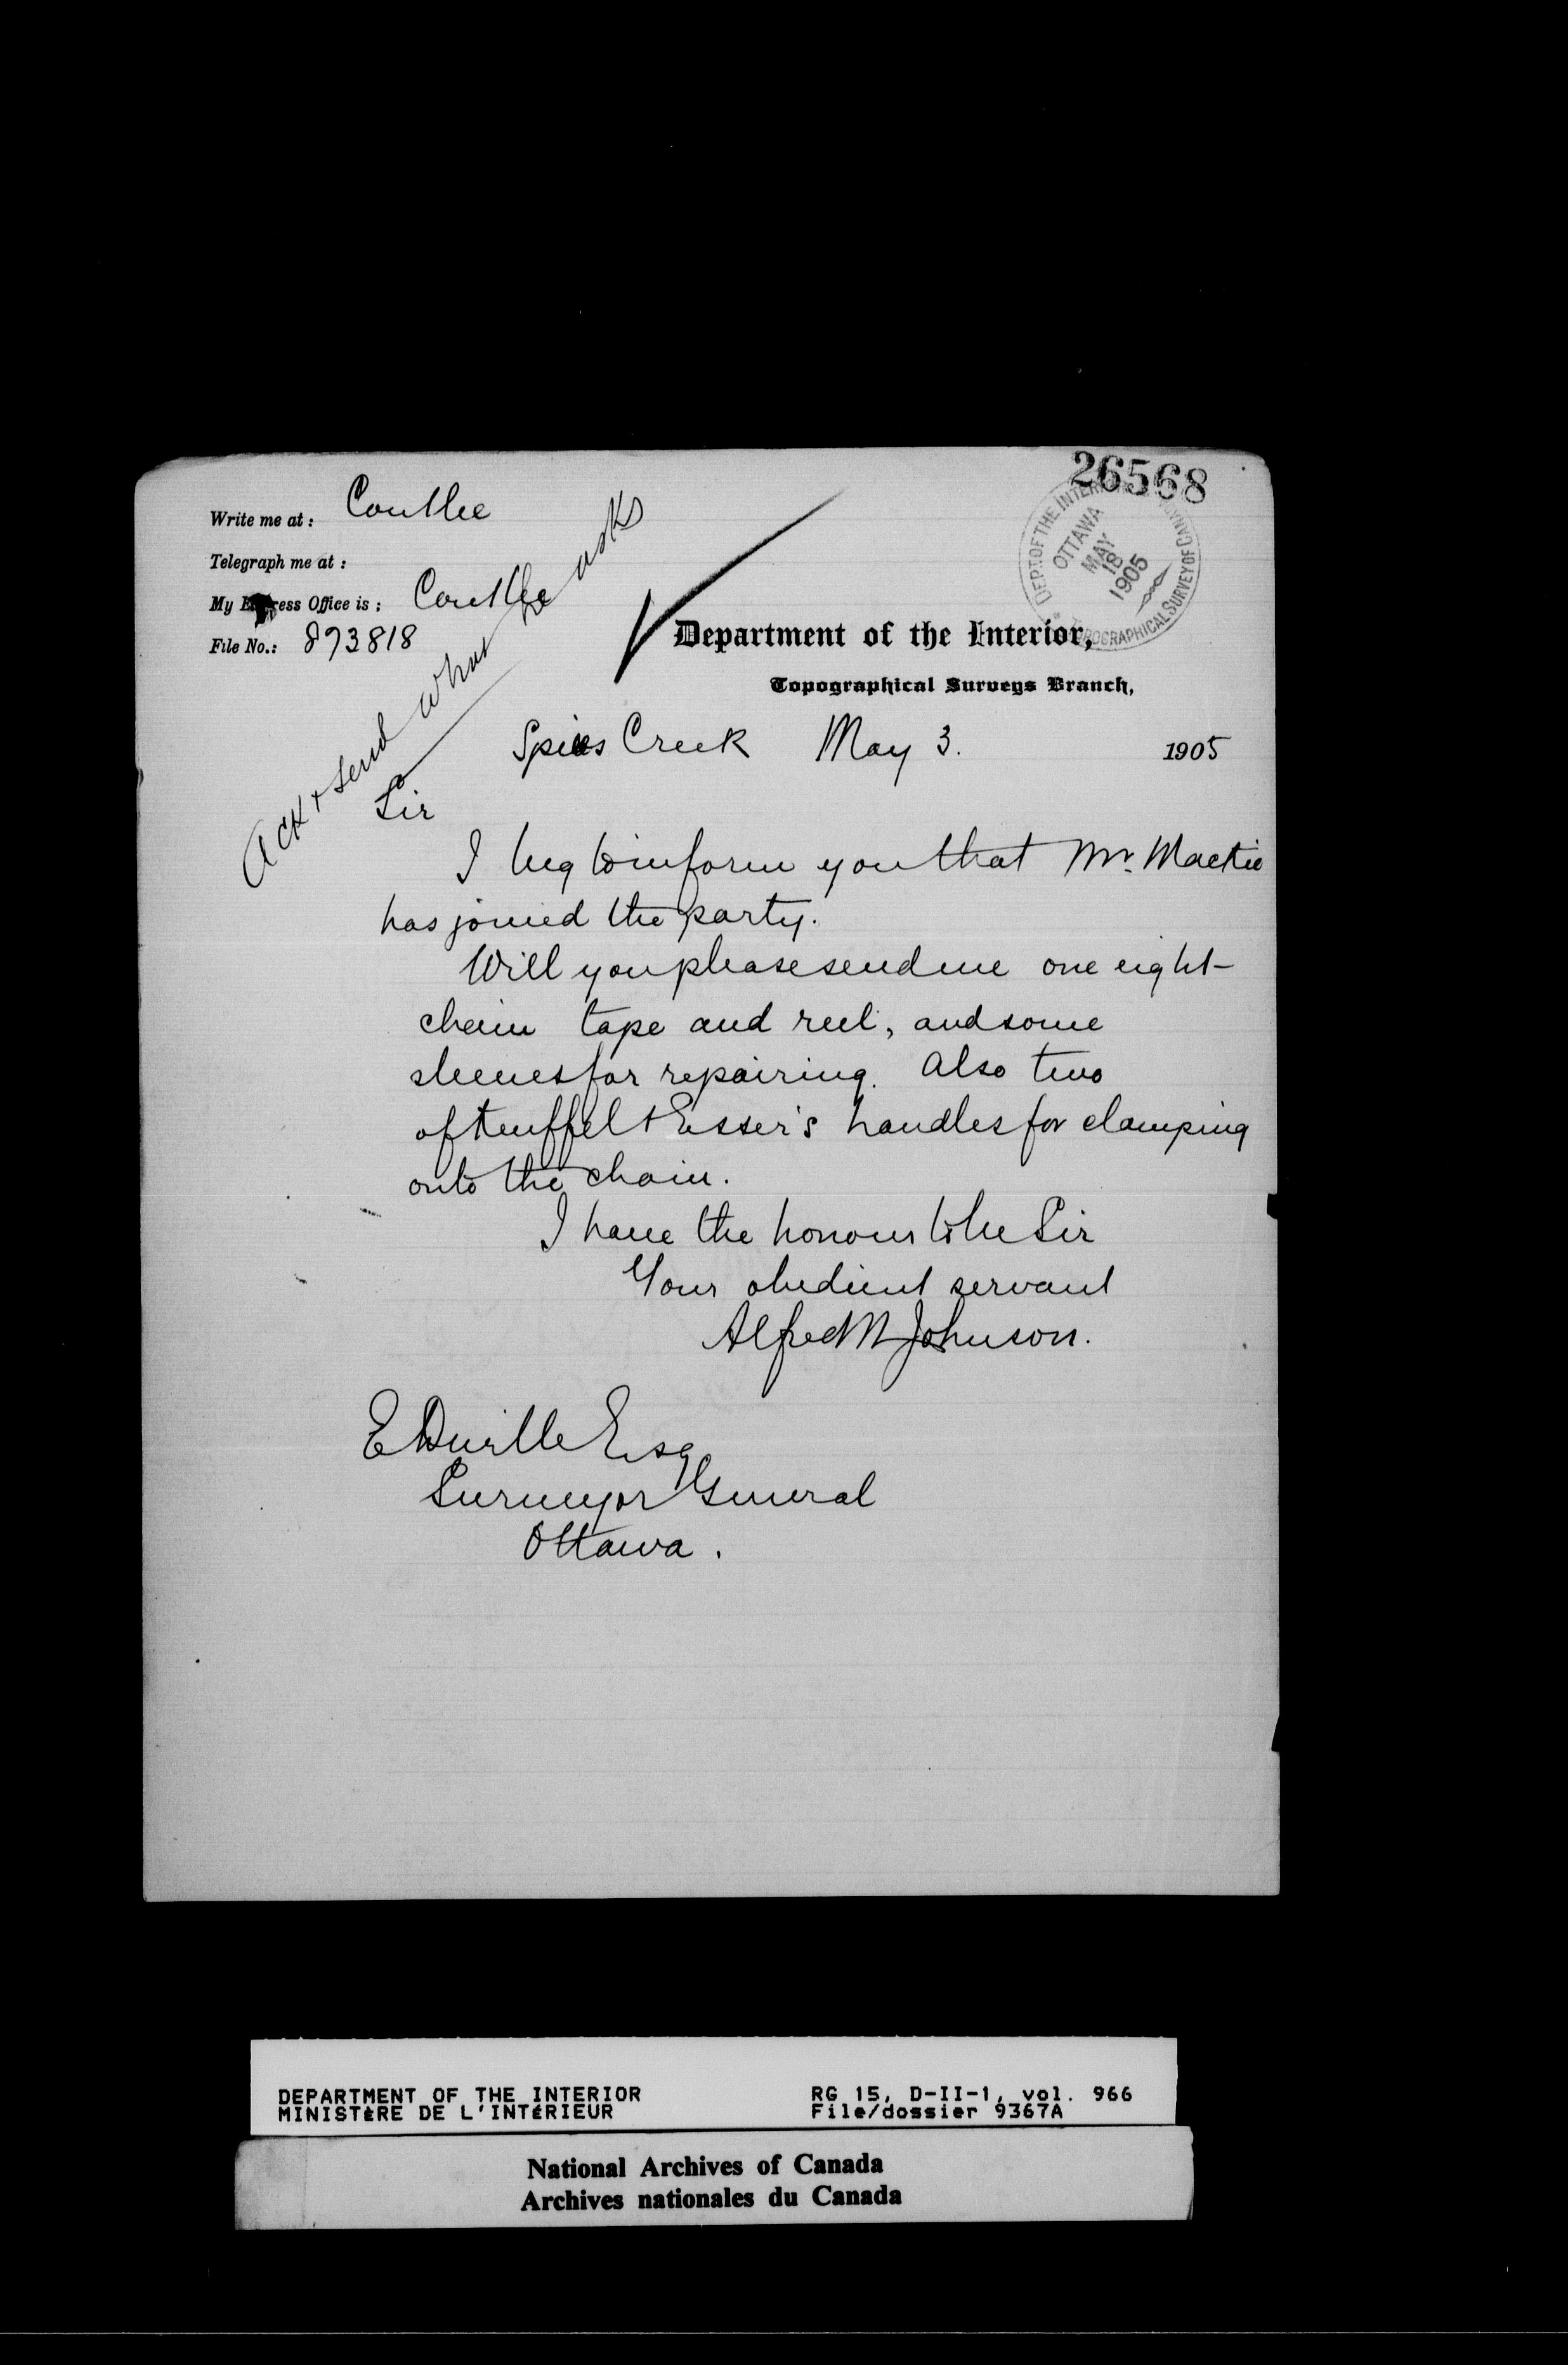 26568
DEPT. OF THE INTERIOR
OTTAWA
MAY
18
1905
TOPOGRAPHICAL SURVEY OF CANADA
Write me at: Coutlee
Telegraph me at:
My Express Office is: Coutlee
File No.: 893818
Ack & send what he asks
Department of the Interior,
Topographical Surveys Branch,
Creek May 3. 1905
Sir
I beg to inform you that Mr. Mackie
has joined the party.
Will you please send me one eight-
chain tape and reel, and some
sleeves for repairing. Also two
of Keuffel & Esser's handles for clamping
onto the chain.
I have the honour to be Sir
Your obedient servant
Alfred Johnson.
E Deville Esq
Surveyor General
Ottawa.
DEPARTMENT OF THE INTERIOR
MINISTÈRE DE L'INTÉRIEUR
RG 15, D-II-1, vol. 966
File/dossier 9367A
National Archives of Canada
Archives nationales du Canada